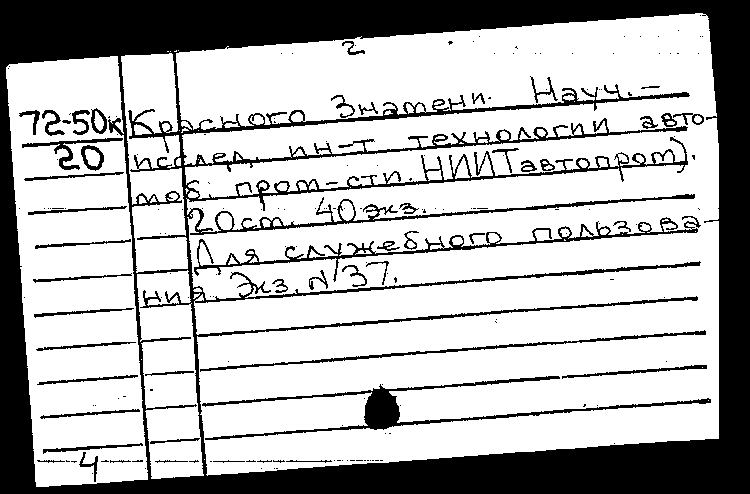 2
72-50к Красного Знамени. Науч.-
20 исслед. ин-т технологии авто-
моб. пром-сти. НИИТавтопром).
20 см. 40 экз.
Для служебного пользова-
ния. Экз. №37.
4